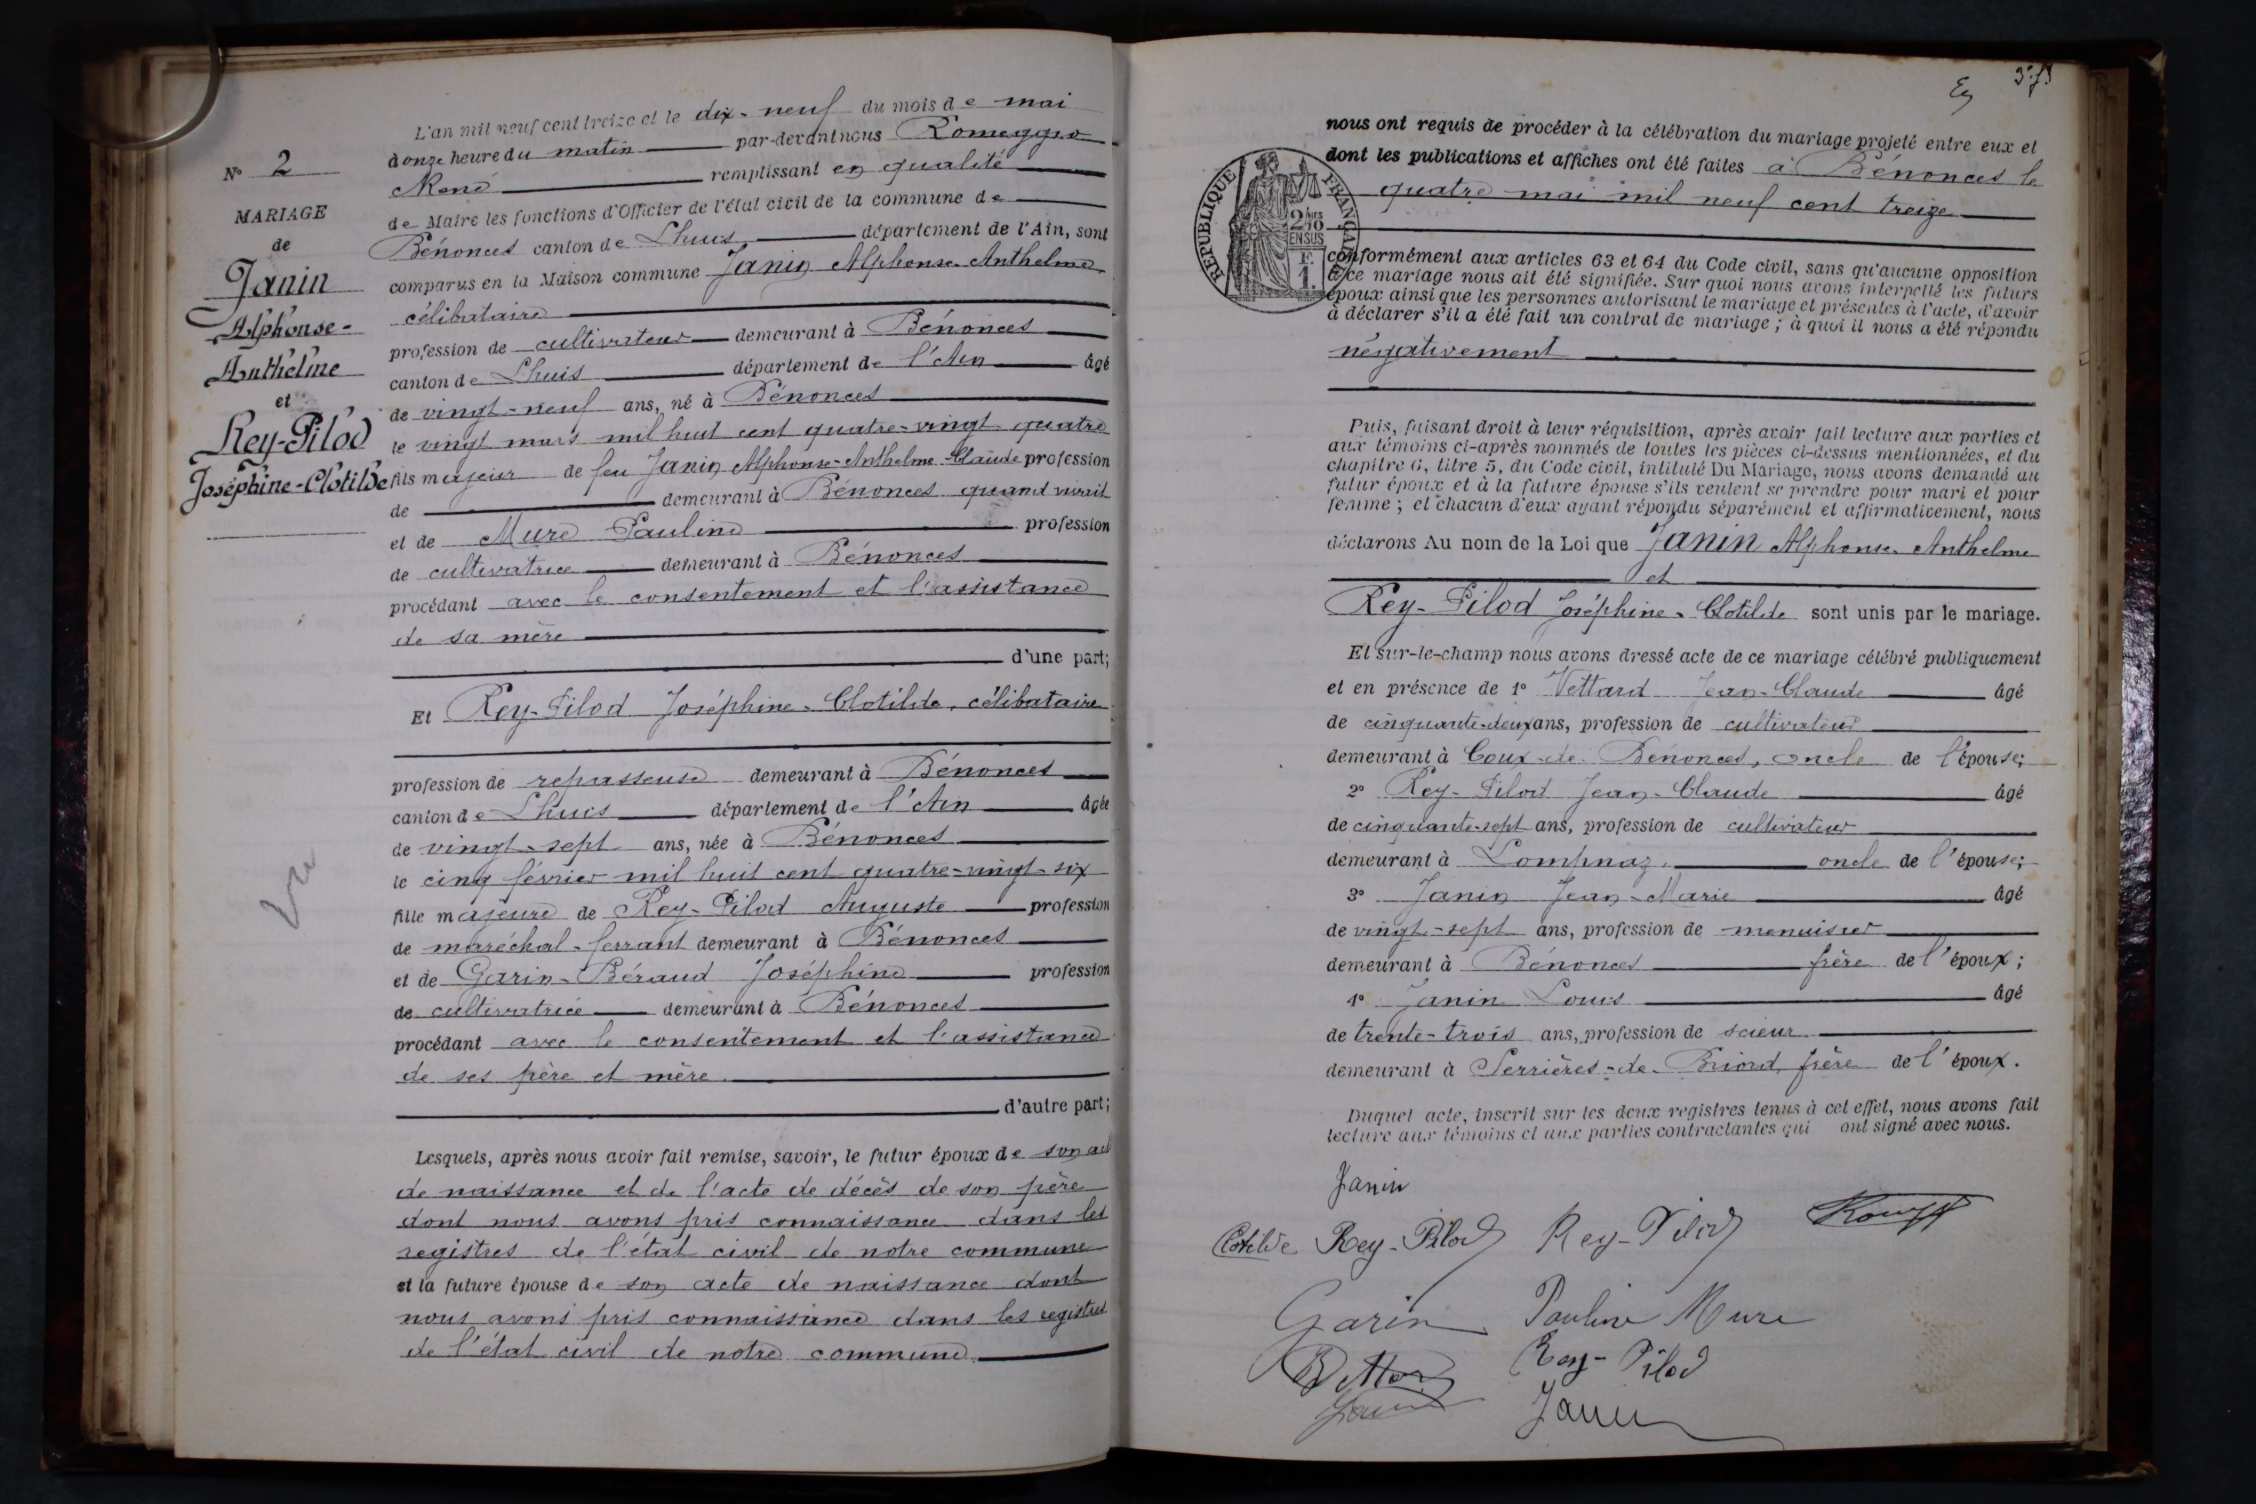 N° 2
MARIAGE
de
Janin
Alphonse-
Anthelme
et
Rey-Pilod
Joséphine-Clotilde
L'an mil neuf cent treize et le dix-neuf du mois de mai
à onze heure du matin par-devant nous Romeggio
René remplissant en qualité
de Maire les fonctions d'Officier de l'état civil de la commune de
Bénonces canton de Lhuis département de l'Ain, sont
comparus en la Maison commune Janin Alphonse-Anthelme
célibataire
profession de cultivateur demeurant à Bénonces
canton de Lhuis département de l'Ain âgé
de vingt-neuf ans, né à Bénonces
le vingt mars mil huit cent quatre-vingt-quatre
fils majeur de feu Janin Alphonse-Anthelme-Claude profession
de demeurant à Bénonces quand vivait
et de Mure Pauline profession
de cultivatrice demeurant à Bénonces
procédant avec le consentement et l'assistance
de sa mère
d'une part;
Et Rey-Pilod Joséphine-Clotilde, célibataire
profession de repasseuse demeurant à Bénonces
canton de Lhuis département de l'Ain âgée
de vingt-sept ans, née à Bénonces
le cinq février mil huit cent quatre-vingt-six
fille majeure de Rey-Pilod Auguste profession
de maréchal-ferrant demeurant à Bénonces
et de Garin-Béraud Joséphine profession
de cultivatrice demeurant à Bénonces
procédant avec le consentement et l'assistance
de ses père et mère
d'autre part;
Lesquels, après nous avoir fait remise, savoir, le futur époux de son acte
de naissance et de l'acte de décès de son père
dont nous avons pris connaissance dans les
registres de l'état civil de notre commune
et la future épouse de son acte de naissance dont
nous avons pris connaissance dans les registres
de l'état civil de notre commune.
nous ont requis de procéder à la célébration du mariage projeté entre eux et
dont les publications et affiches ont été faites à Bénonces le
quatre mai mil neuf cent treize
RÉPUBLIQUE FRANÇAISE
2/10
EN SUS
F.
1.
conformément aux articles 63 et 64 du Code civil, sans qu'aucune opposition
à ce mariage nous ait été signifiée. Sur quoi nous avons interpellé les futurs
époux ainsi que les personnes autorisant le mariage et présentes à l'acte, d'avoir
à déclarer s'il a été fait un contrat de mariage; à quoi il nous a été répondu
négativement
Puis, faisant droit à leur réquisition, après avoir fait lecture aux parties et
aux témoins ci-après nommés de toutes les pièces ci-dessus mentionnées, et du
chapitre 6, titre 5, du Code civil, intitulé Du Mariage, nous avons demandé au
futur époux et à la future épouse s'ils veulent se prendre pour mari et pour
femme; et chacun d'eux ayant répondu séparément et affirmativement, nous
déclarons Au nom de la Loi que Janin Alphonse-Anthelme
et
Rey-Pilod Joséphine-Clotilde sont unis par le mariage.
Et sur-le-champ nous avons dressé acte de ce mariage célébré publiquement
et en présence de 1° Vettard Jean-Claude âgé
de cinquante-deux ans, profession de cultivateur
demeurant à Coux-de-Bénonces, oncle de l'épouse;
2° Rey-Pilod Jean-Claude âgé
de cinquante-sept ans, profession de cultivateur
demeurant à Lompnaz, oncle de l'épouse;
3° Janin Jean-Marie âgé
de vingt-sept ans, profession de menuisier
demeurant à Bénonces frère de l'époux;
4° Janin Louis âgé
de trente-trois ans, profession de scieur
demeurant à Serrières-de-Briord, frère de l'époux.
Duquel acte, inscrit sur les deux registres tenus à cet effet, nous avons fait
lecture aux témoins et aux parties contractantes qui ont signé avec nous.
Janin
Clotilde Rey-Pilod Rey-Pilod
Garin Pauline Mure
Rey-Pilod
Janin